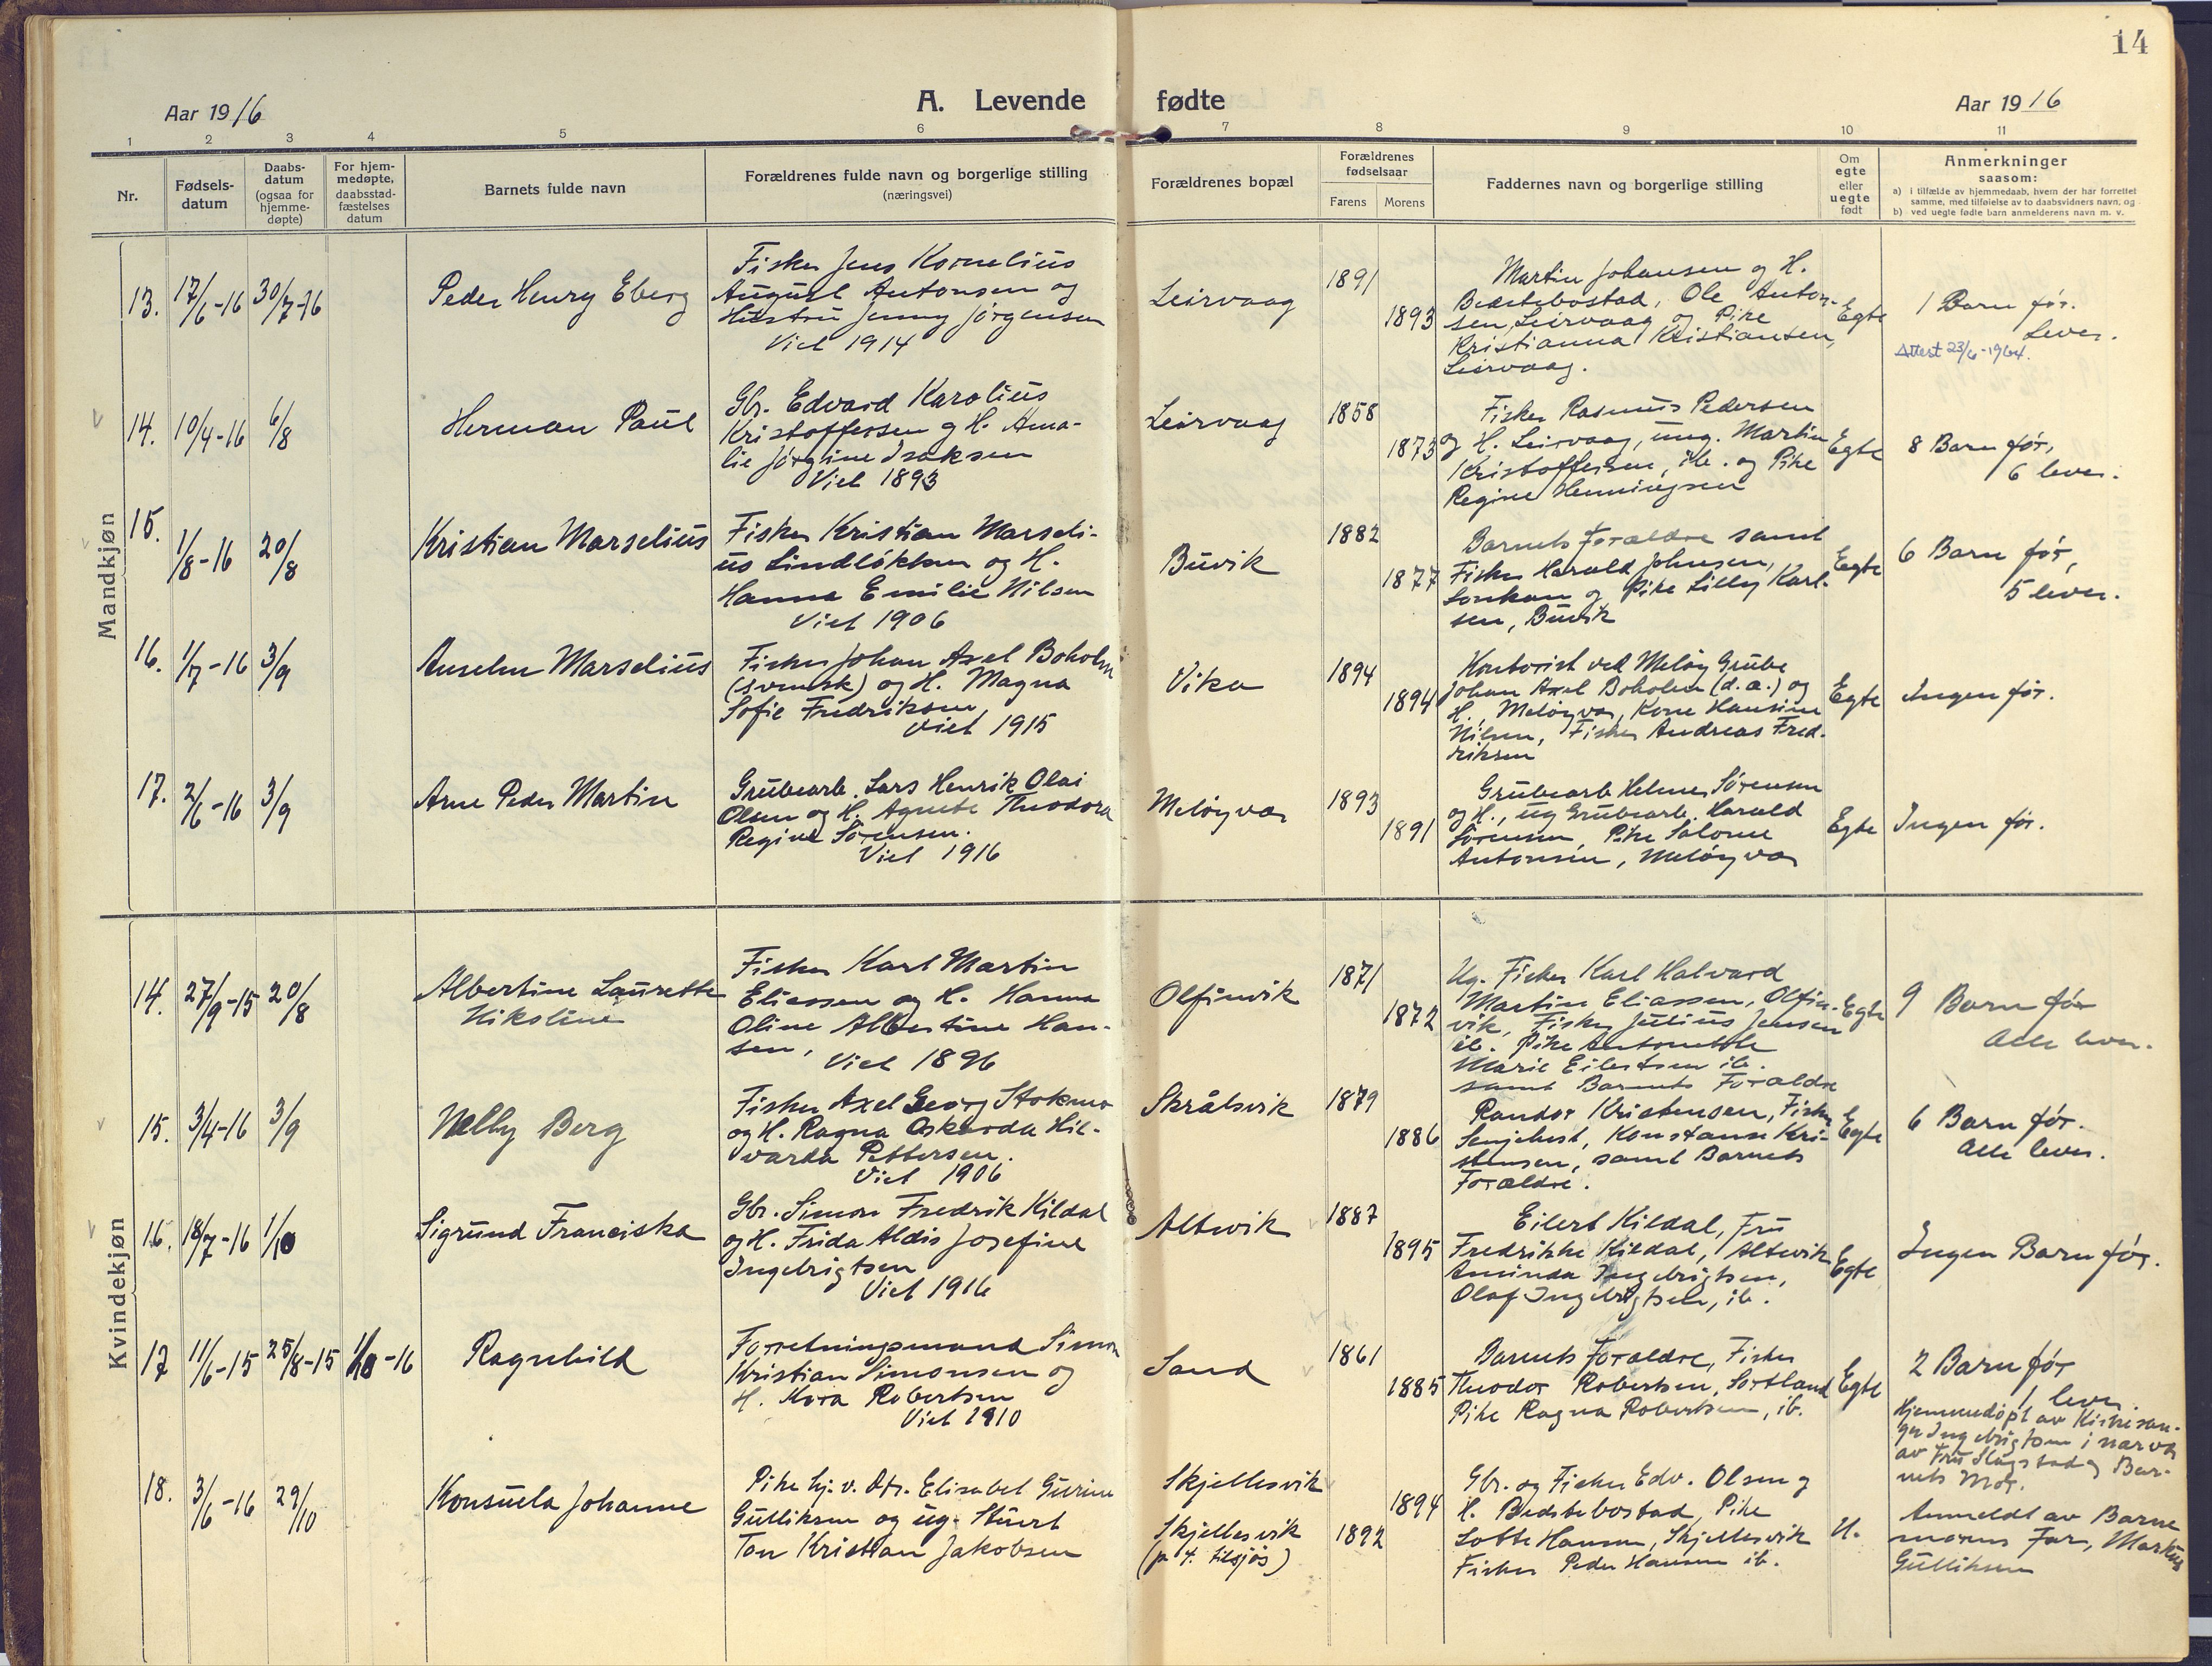 14
Aar 1916
A. Levende fødte
Aar 1916
1 2 3 4 5 6 7 8 9 10 11
Nr.
Fødsels-
datum
Daabs-
datum
(ogsaa for
hjemme-
døpte)
For hjem-
medøpte,
daabsstad-
fæstelses
datum
Barnets fulde navn
Forældrenes fulde navn og borgerlige stilling
(næringsvei)
Forældrenes bopæl
Forældrenes
fødselsaar
Farens
Morens
Faddernes navn og borgerlige stilling
Om
egte
eller
uegte
født
Anmerkninger
saasom:
a) i tilfælde av hjemmedaab, hvem der har forrettet
samme, med tilføielse av to daabsvidners navn, og
b) ved uegte fødte barn anmelderens navn m. v.
Mandkjøn
13. 17/6-16 30/7-16
Peder Henry Eberg
Fisker Jens Kornelius
August Antonsen og
Hustru Jenny Jørgensen
Viet 1914
Leirvaag
1891
1893
Martin Johansen og H.
Bedstebostad, Ole Anton-
sen, Leirvaag og Pike
Kristianna Kristiansen,
Leirvaag.
Egte
1 Barn før.
Lever.
Attest 23/6-1964.
14. 10/4-16 6/8
Herman Paul
Gbr. Edvard Karolius
Kristoffersen og H. Ama-
lie Jørgine Isaksen
Viet 1893
Leirvaag
1858
1873
Fisker Rasmus Pedersen
og H. Leirvaag, ung. Martin
Kristoffersen, ib. og Pike
Regine Henningsen
Egte
8 Barn før,
6 lever.
15. 1/8-16 20/8
Kristian Marselius
Fisker Kristian Marseli-
us Lindløkken og H.
Hanna Emilie Nilsen
Viet 1906
Buvik
1882
1877
Barnets Forældre samt
Fisker Harald Johnsen,
og Pike Lilly Karl-
sen, Buvik
Egte
6 Barn før,
5 lever.
16. 1/7-16 3/9
Anselm Marselius
Fisker Johan Axel Boholm
(svensk) og H. Magna
Sofie Fredriksen,
Viet 1915
Vika
1894
1894
Kontorist ved Meløy Grube
Johan Axel Boholm (d.æ.) og
H., Meløyvær, Kone Hansine
Nilsen, Fisker Andreas Fred-
riksen
Egte
Ingen før.
17. 2/6-16 3/9
Arne Peder Martin
Grubearb. Lars Henrik Olai
Olsen og H. Agnete Theodora
Regine Sørensen.
Viet 1916
Meløyvær
1893
1891
Grubearb Helmer Sørensen
og H., ug Grubearb. Harald
Sørensen, Pike Salome
Antonsen, Meløyvær
Egte
Ingen før.
Kvindekjøn
14. 27/9-15 20/8
Albertine Laurette
Nikoline
Fisker Karl Martin
Eliassen og H. Hanna
Oline Albertine Han-
sen,
Viet 1896
Olfinvik
1871
1872
Ug. Fisker Karl Halvard
Martin Eliassen, Olfin-
vik, Fisker Julius Jensen
ib. Pike Antonette
Marie Eilertsen ib.
samt Barnets Forældre
Egte
9 Barn før
Alle lever.
15. 3/4-16 3/9
Nelly Berg
Fisker Axel Georg Stokmo
og H. Ragna Oskarda Hil-
varda Pettersen.
Viet 1906
Skrålsvik
1879
1886
Randor Kristensen, Fisker
Konstanse Kri-
stensen, samt Barnets
Forældre.
Egte
6 Barn før.
Alle lever.
16. 18/7-16 1/10
Sigrund Franciska
Gbr. Simon Fredrik Kildal
og H. Frida Aldis Josefine
Ingebrigtsen
Viet 1916
Altevik
1887
1895
Eilert Kildal, Fru
Fredrikke Kildal, Altevik
Aminda Ingebrigtsen,
Olaf Ingebrigtsen, ib.
Egte
Ingen Barn før.
17 11/6-15 25/8-15 1/10-16
Ragnhild
Forretningsmand Simon
Kristian Simonsen og
H. Kora Robertsen
Viet 1910
Sand
1861
1885
Barnets Forældre, Fisker
Theodor Robertsen, Sortland
Pike Ragna Robertsen, ib.
Egte
2 Barn før
1 lever.
Hjemmedøpt av Kirkesan-
ger Ingebrigtsen i nærvær
av Fru Slagstad og Bar-
nets Mor.
18. 3/6-16 29/10
Konsuela Johanne
Pike hj. v. Dtr. Elisabet Gurine
Gulliksen og ug. Stuert
Ton Kristian Jakobsen
Skjellesvik
Skjellesvik
(p. t. tilsjøs)
1894
1892
Gbr. og Fisker Edv. Olsen og
H. Bedstebostad, Pike
Lotte Hansen, Skjellesvik
Fisker Peder Hansen ib.
U.
Anmeldt av Barne
morens Far, Markus
Gulliksen